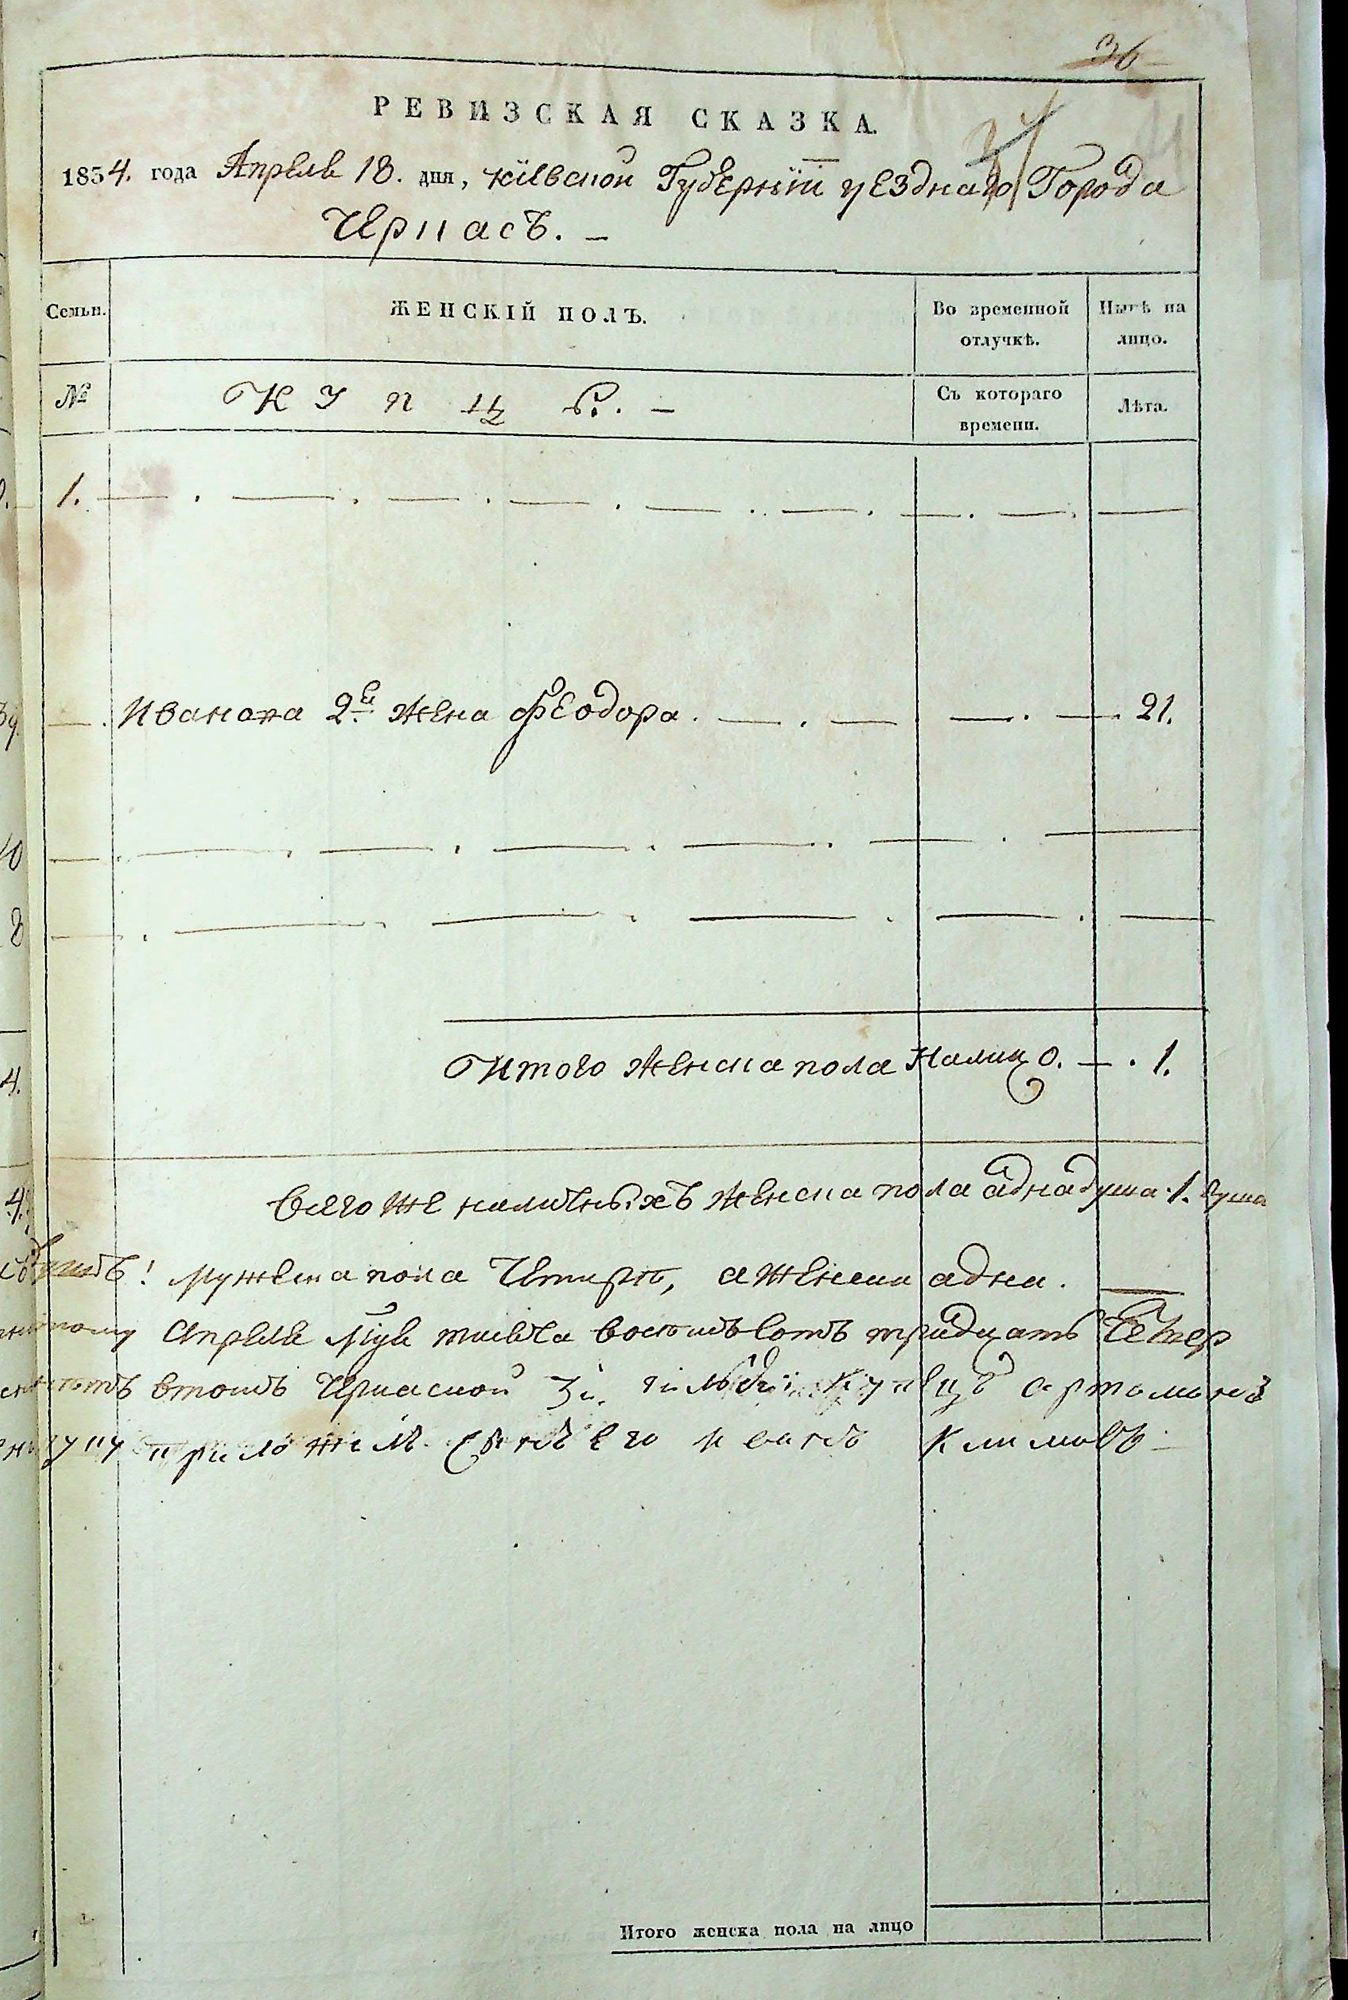 36
РЕВИЗСКАЯ СКАЗКА.
1834. года Апреля 18. дня, Кіевской Губерніи уезднаго Города
Черкасъ. –
Семьи. ЖЕНСКІЙ ПОЛЪ. Во временной отлучкѣ. Нынѣ на лицо.
№ Купцы. – Съ котораго времени. Лѣта.
1.
Иванова 2я жена Феодора. 21.
Итого женска пола налицо. 1.
Всего же наличныхъ женска пола адна душа. 1. душа
! мужеска пола Четыри, а женски адна.
Апреля дня тисеча восемъ сотъ тридцать Четвер
въ томъ Черкаской 3й. гильдіи Купецъ Артамонъ
руку приложилъ сынъ его Иванъ Климовъ
Итого женска пола на лицо